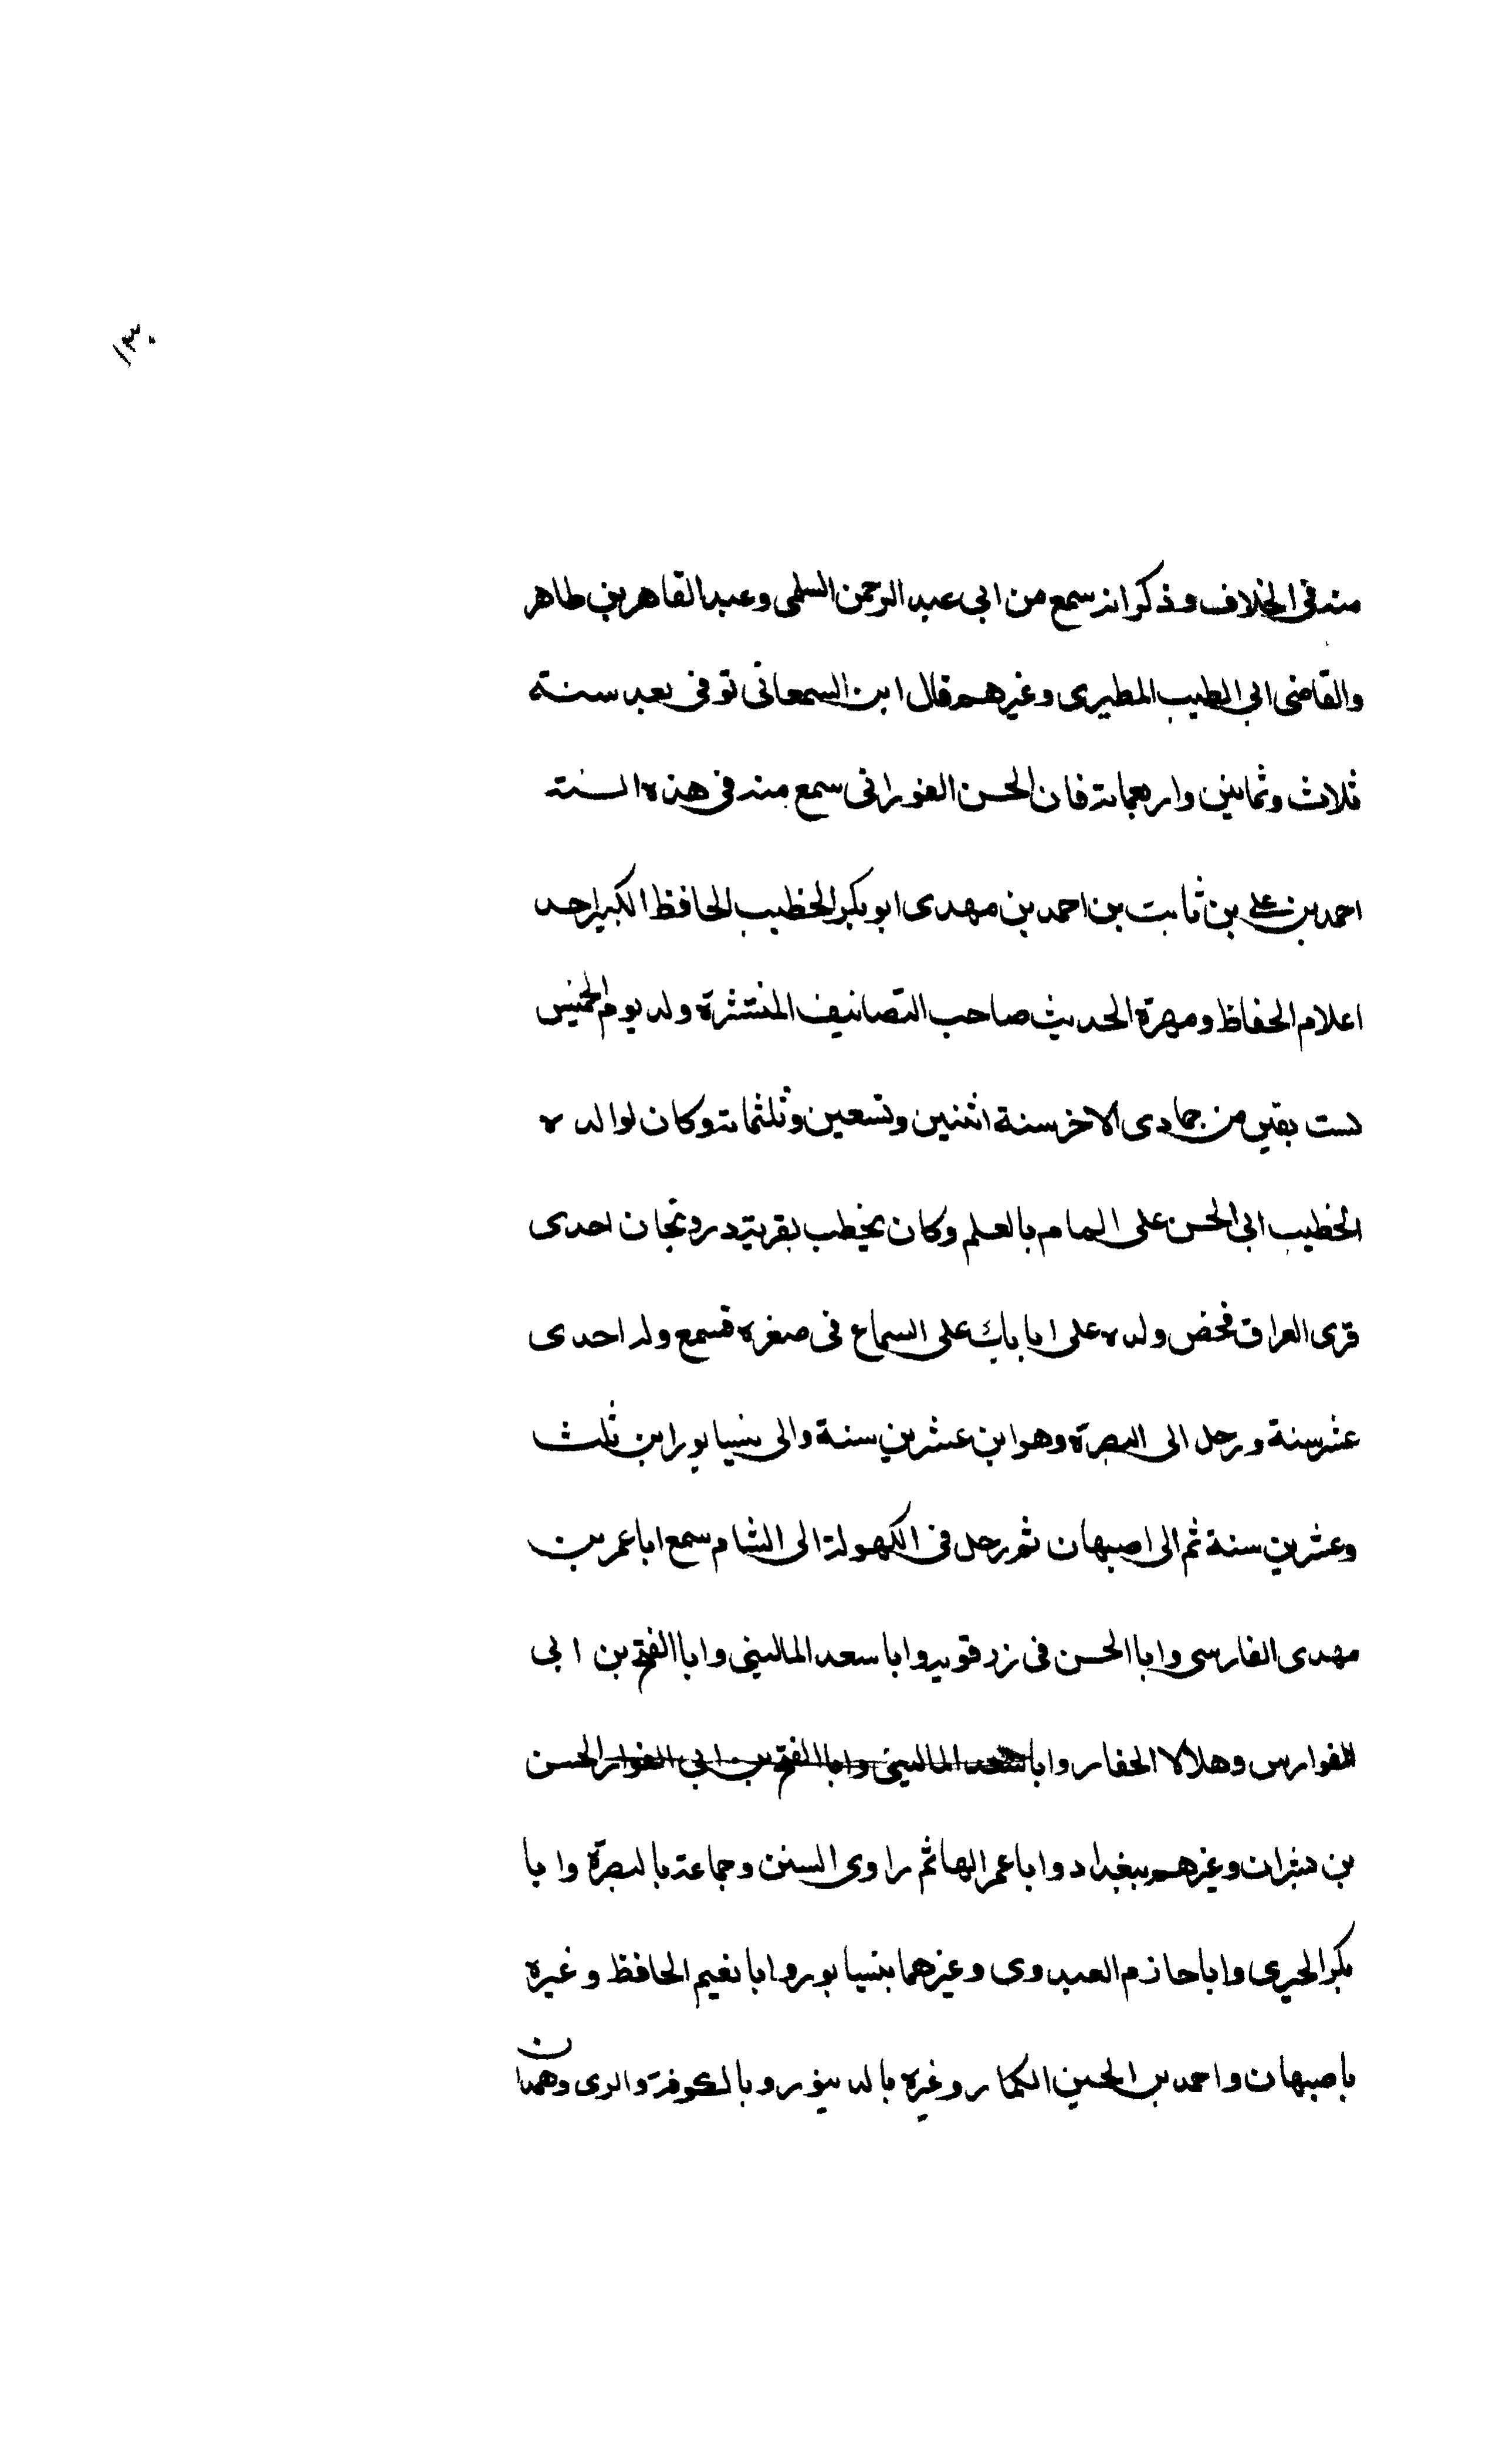 ١٣٠
منه في الخلاف وذكر انه سمع من ابي عبد الرحمن السلمى وعبد القاهر بن طاهر
والقاضى ابي الطيب المطيرى وغيرهم قال ابن السمعانى توفى بعد سنة
ثلاث وثمانين واربعمائة فان الحسن الفورانى سمع منه فى هذه السنة
احمد بن على بن ثابت بن احمد بن مهدى ابو بكر الخطيب الحافظ الكبير احد
اعلام الحفاظ ومهرة الحديث صاحب التصانيف المنتشرة ولد يوم الخميس
لست بقين من جمادى الاخر سنة اثنين وتسعين وثلثمائة وكان لوالده
الخطيب ابى الحسن على المام بالعلم وكان يخطب بقرية درزنجان احدى
قرى العراق فحض ولده على اباباك على السماع فى صغره فسمع وله احدى
عشر سنة ورحل الى البصرة وهو ابن عشرين سنة والى نيسابور ابن ثلث
وعشرين سنة ثم الى اصبهان ثم رحل فى الكهولة الى الشام سمع ابا عمر بن
مهدى الفارسى وابا الحسن فى زرقويه وابا سعد المالينى وابا الفتح بن ابى
الفوارس وهلالا الحفار وابا سعد المالينى وابا الفتح بن ابى الفوار الحسن
بن بشران وغيرهم ببغداد وابا عمر الهاشم راوى السنن وجماعة بالبصرة وابا
بكر الحيرى وابا حازم العبدوى وغيرهما بنيسابور وابا نعيم الحافظ وغيره
باصبهان واحمد بن الحسين الكمار وغيره بالدينور وبالكوفة والرى وهمدان